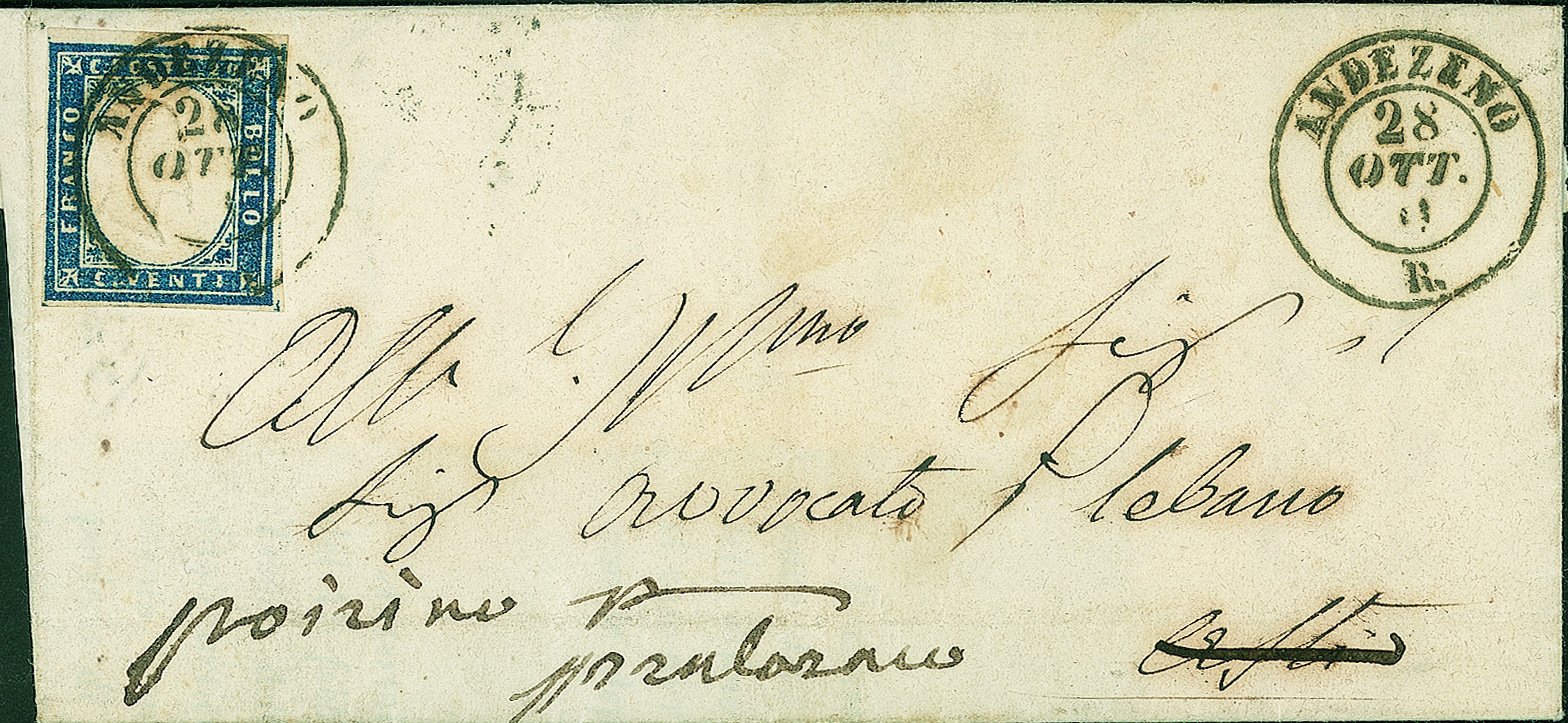 C. POSTE
FRANCO
BOLLO
C. VENTI
ANDEZENO
28
OTT.
ANDEZENO
28
OTT.
R.
All' Ill.mo Sig il
Sigr avvocato Plebano
poirino P
pralormo